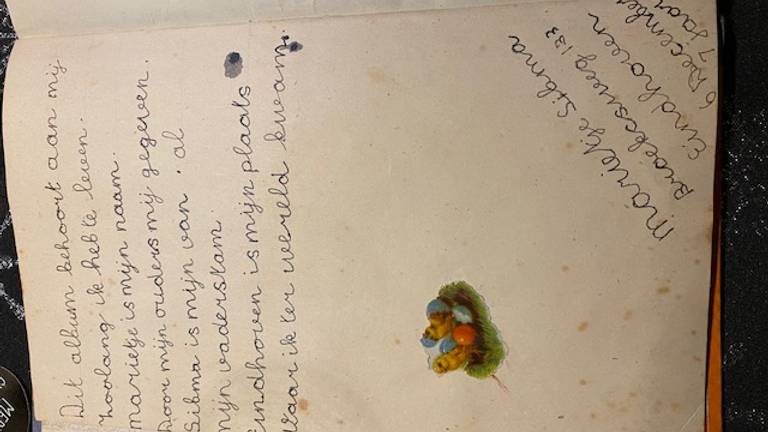 Dit album behoort aan mij
Zoolang ik heb te leven.
marietje is mijn naam.
Door mijn ouders mij gegeven.
Sibma is mijn van. al
mijn vaderstam.
Eindhoven is mijn plaats
Waar ik ter wereld kwam.
marietje Sibma
133
Eindhoven
6 December
7 Jaar